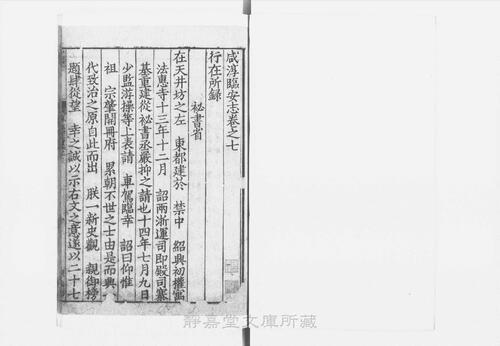 咸淳臨安志卷之七
行在所錄
祕書省
在天井坊之左　東都建於　禁中　紹興初權寓
法惠寺十三年十二月　詔兩浙運司即殿司寨
基重建從祕書丞嚴抑之請也十四年七月九日
少監游操等上表請　車駕臨幸　詔曰仰惟
祖　宗肇開冊府　累朝不世之士由是而興
代致治之原自此而出　朕一新史觀　親御榜
題肆從望　幸之誠以示右文之意遂以二十七
靜嘉堂文庫所藏